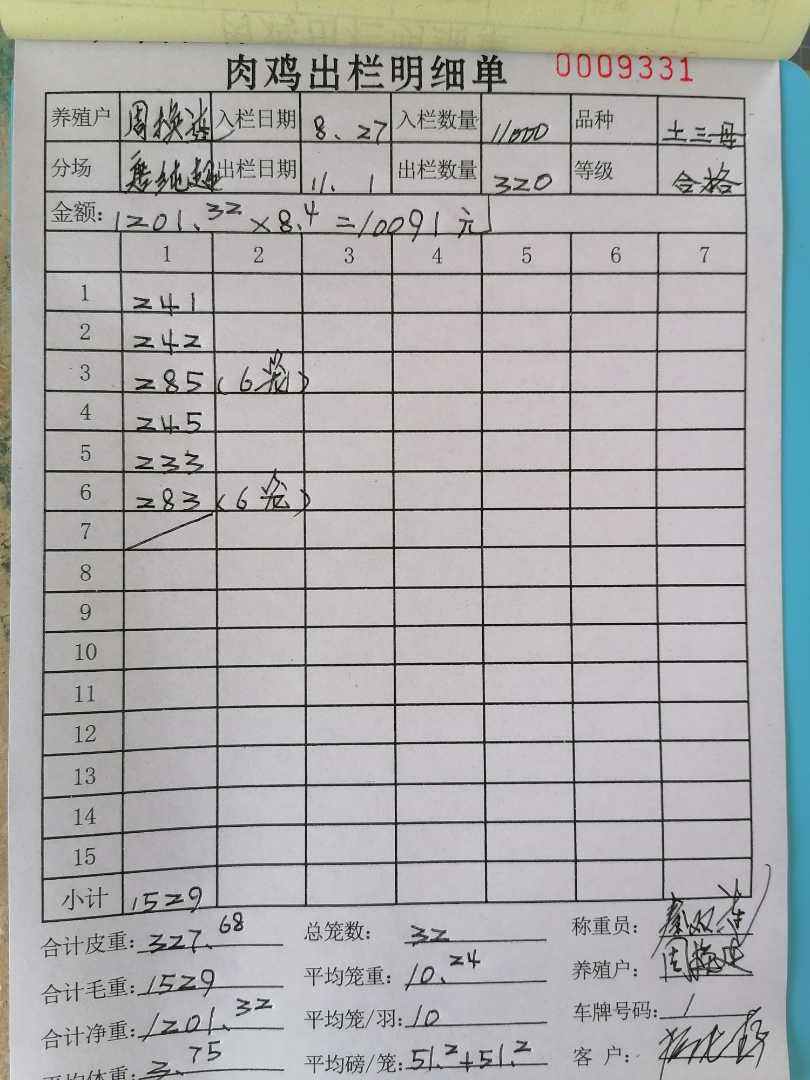 肉鸡出栏明细单 0009331
养殖户 周换莲 入栏日期 8.27 入栏数量 11000 品种 土三母
分场 出栏日期 11.1 出栏数量 320 等级 合格
金额: 1201.32×8.4=10091元
1 2 3 4 5 6 7
1 241
2 242
3 285 (6笼)
4 245
5 233
6 283 (6笼)
7
8
9
10
11
12
13
14
15
小计 1529
合计皮重: 327.68 总笼数: 32 称重员:
合计毛重: 1529 平均笼重: 10.24 养殖户:
合计净重: 1201.32 平均笼/羽: 10 车牌号码: /
平均体重: 3.75 平均磅/笼: 51.2+51.2 客 户: